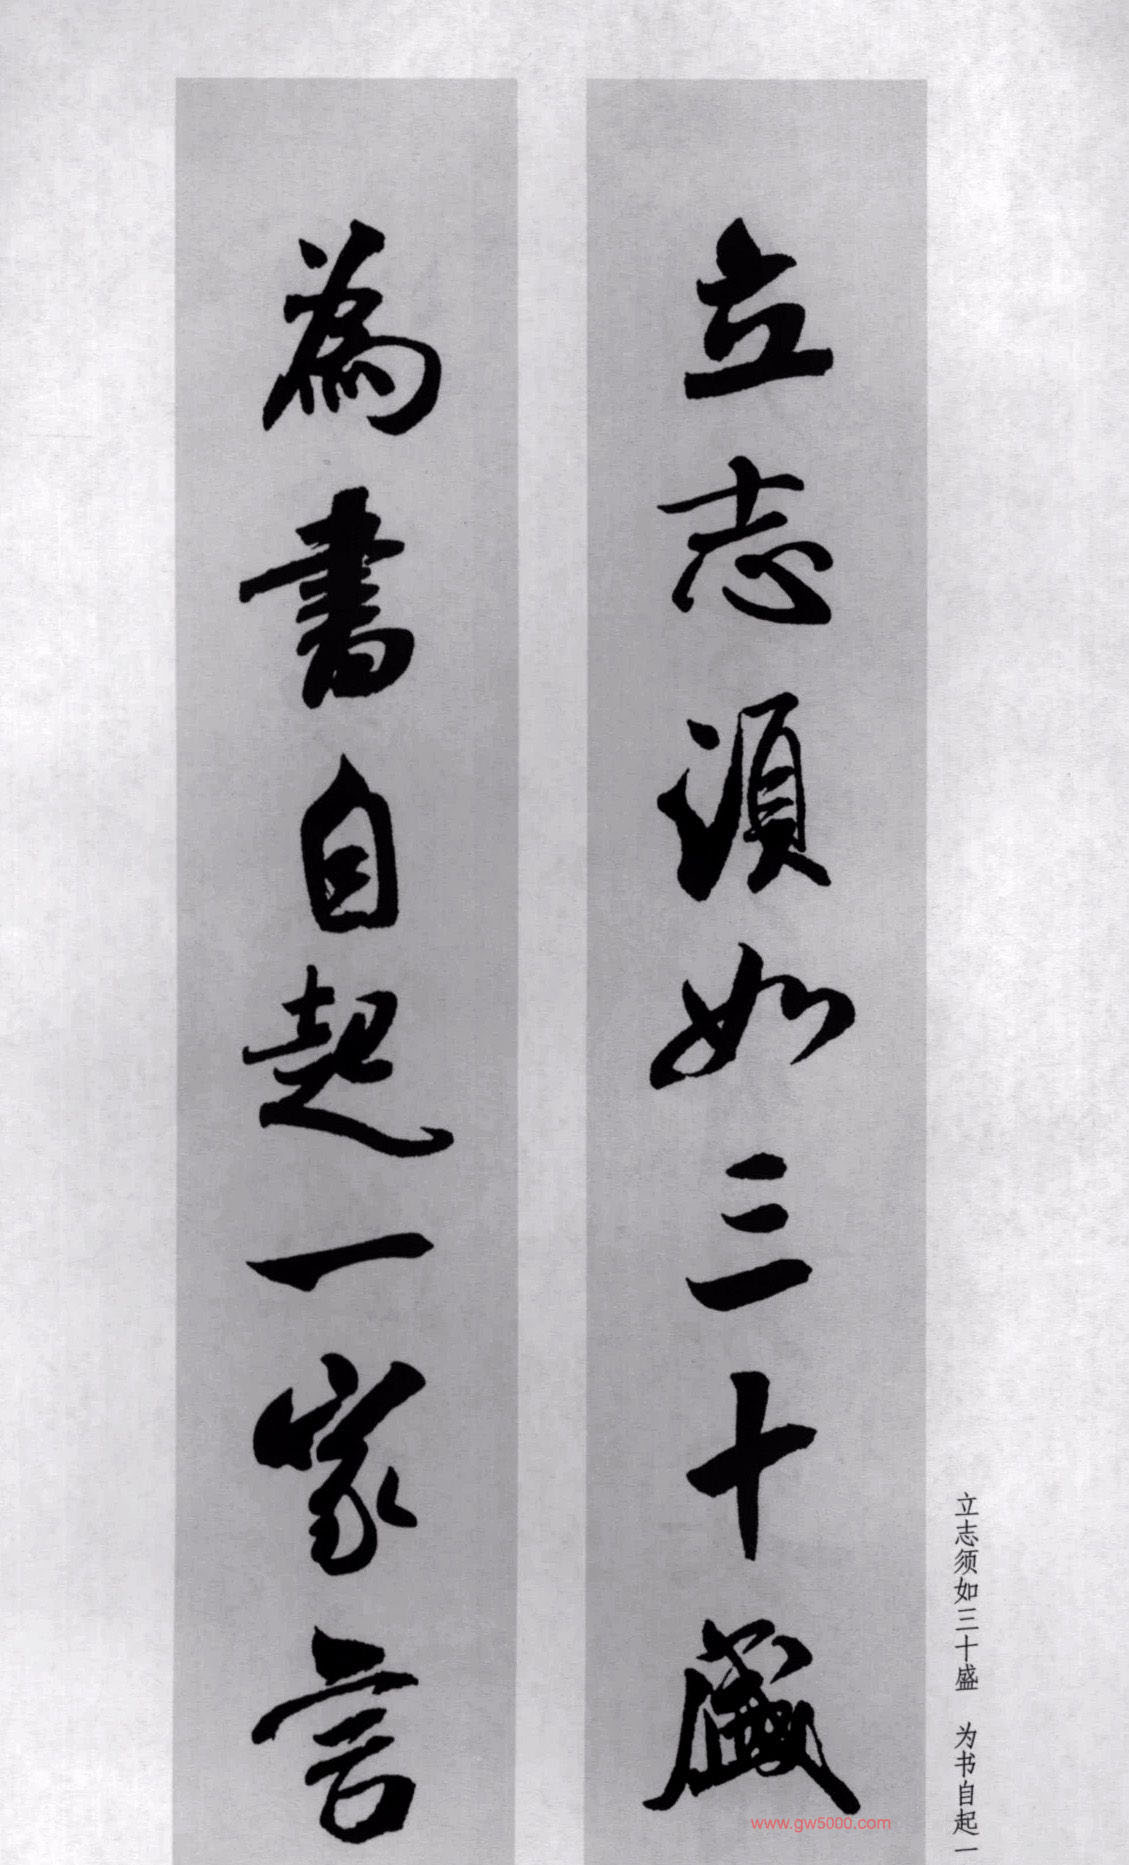 立志須如三十盛
為書自起一家言
立志须如三十盛 为书自起一
www.gw5000.com